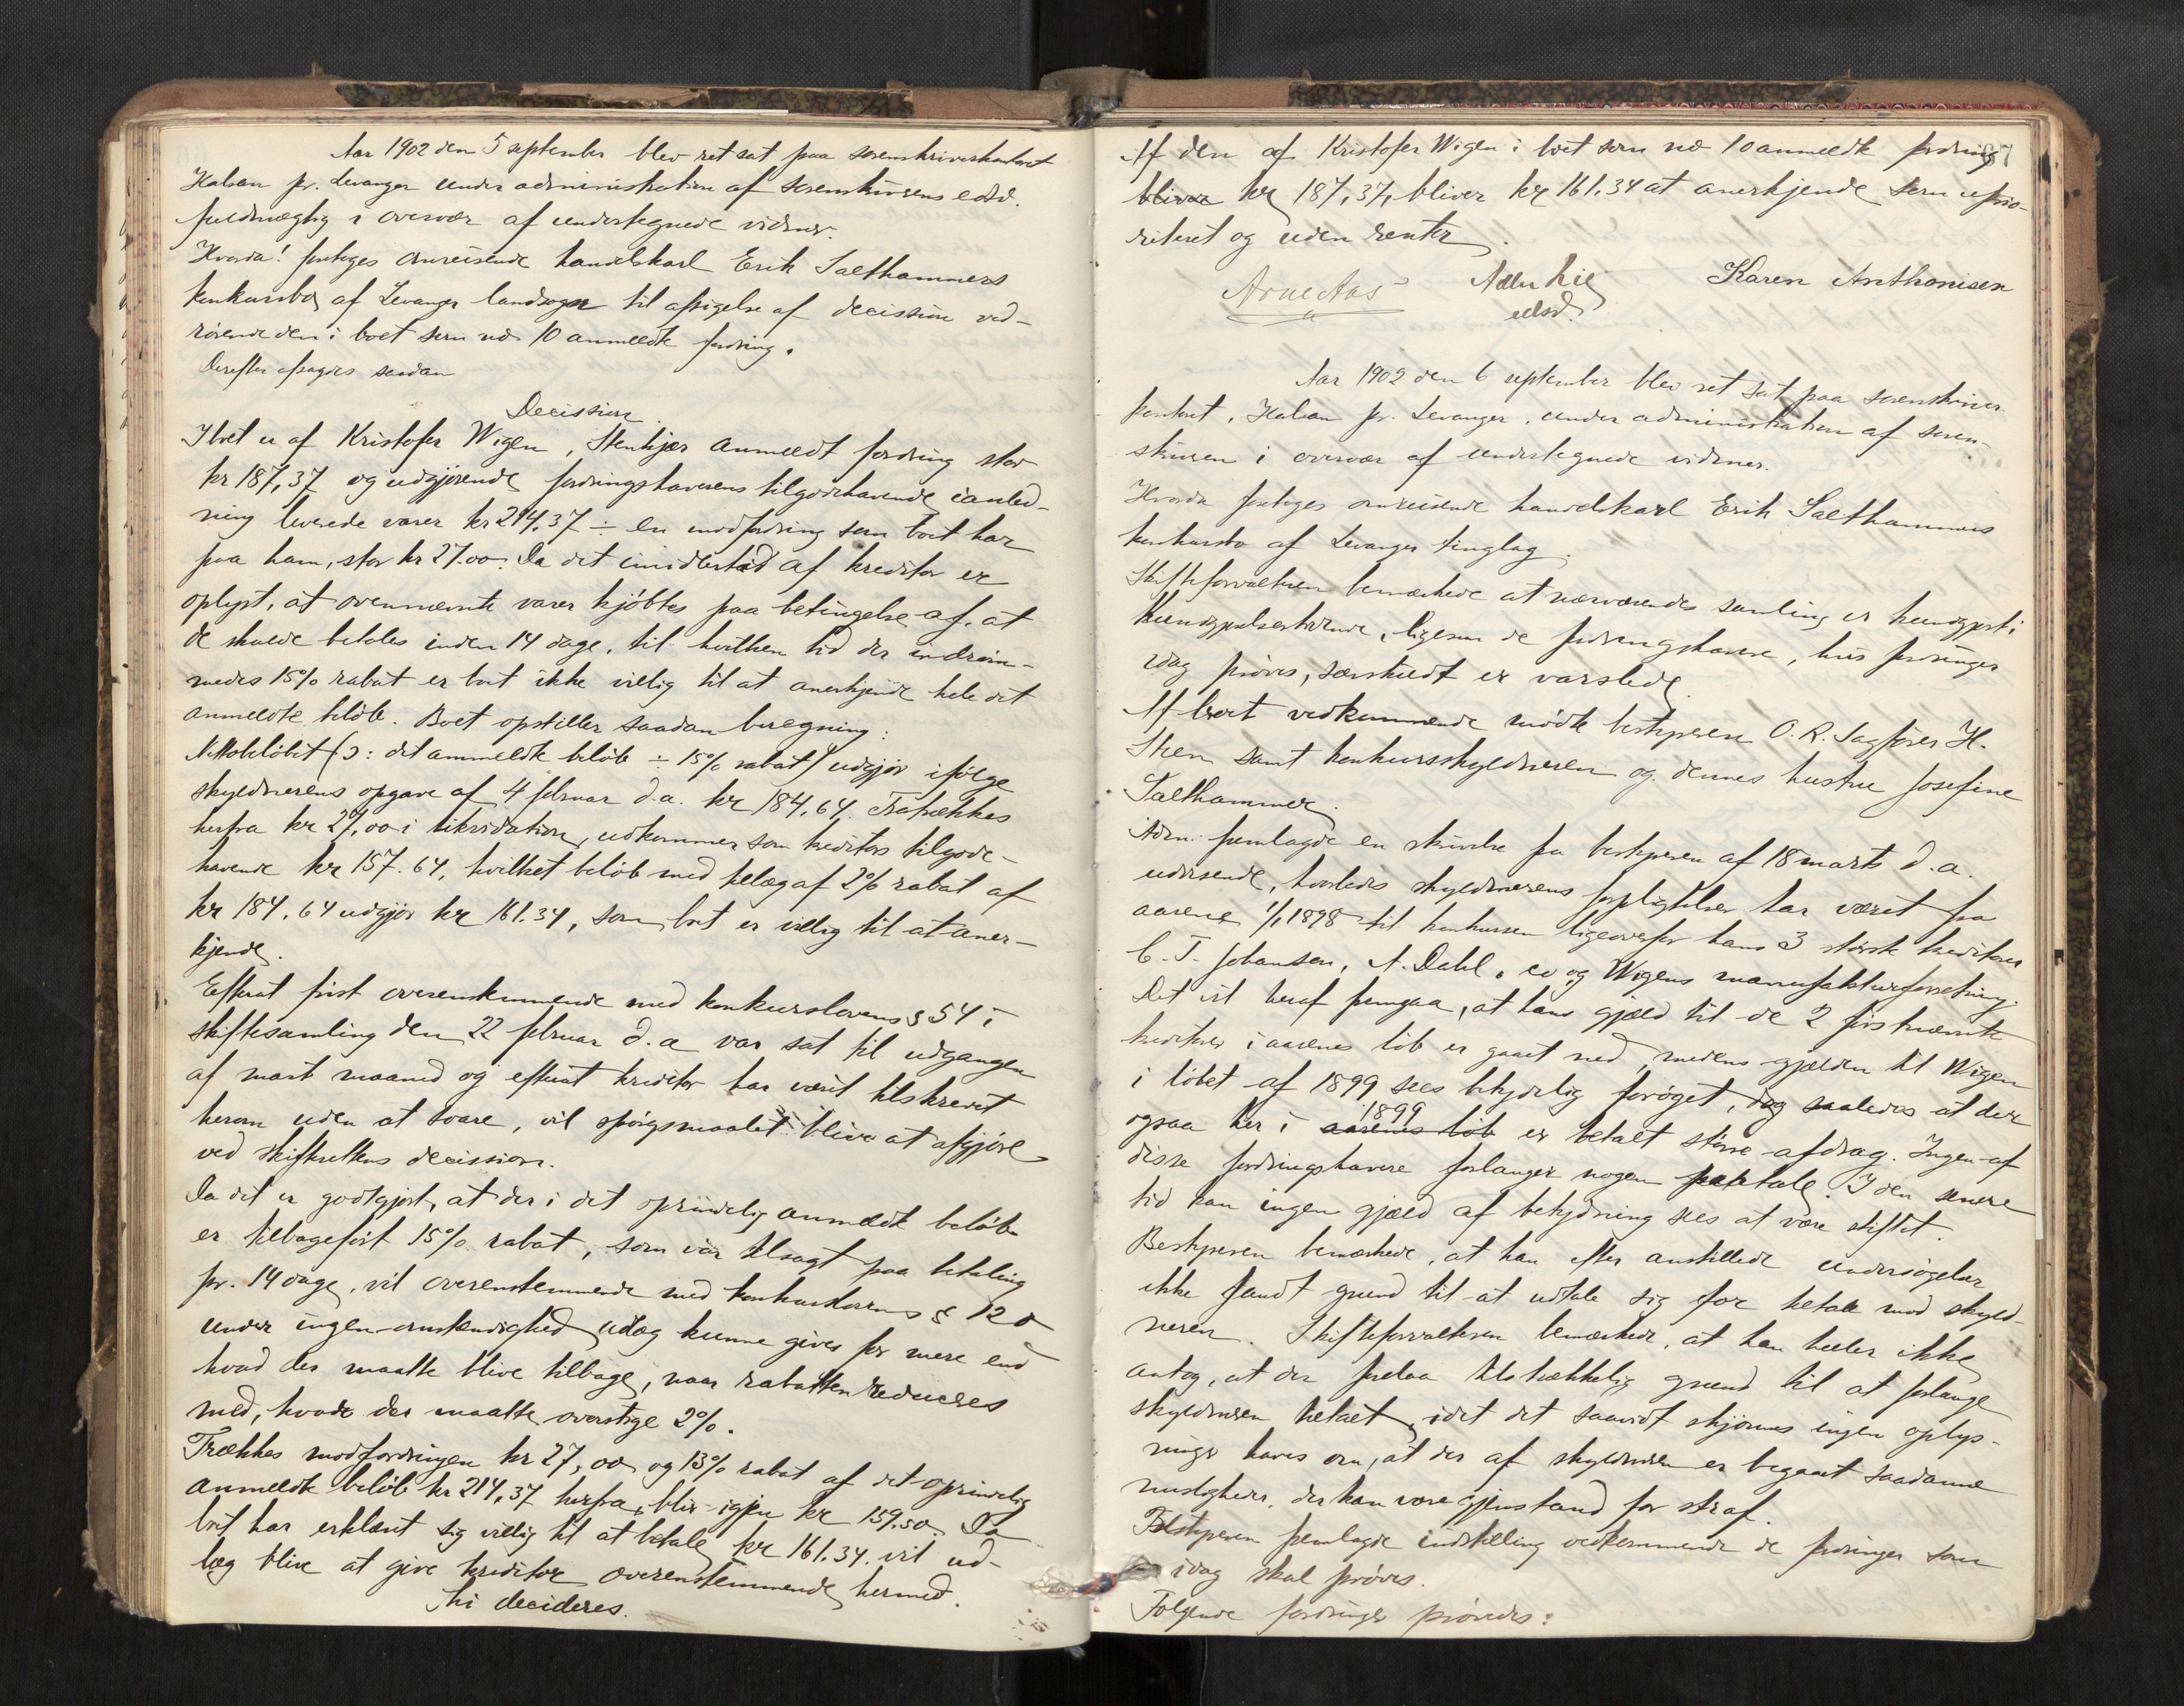 Aar 1902 den 5 september blev ret sat paa sorenskriverkontoret
Halsan pr. Levanger under administration af sorenskriverens edsv.
fuldmægtig i overvær af undertegnede vidner.
Hvorda! foretoges omreisende handelskarl Erik Salthammers
konkursbo af Levanger landsogn til afsigelse af decission ved-
rørende den i boet som no 10 anmeldte fordring.
Derefter afsagdes saadan
Decission.
I boet er af Kristofer Wigen, Stenkjær anmeldt fordring stor
kr 187,37 og udgjørende fordringshaverens tilgodehavende i anled-
ning leverede varer kr 214.37 ÷ en modfordring som boet har
paa ham, stor kr 27.00. Da det imidlertid af kreditor er
oplyst, at ovennævnte varer kjøbtes paa betingelse af, at
de skulde betales inden 14 dage, til hvilken tid der indrøm-
medes 15% rabat er boet ikke villig til at anerkjende hele det
anmeldte beløb. Boet opstiller saadan beregning:
Nettobeløbet (ɔ: det anmeldte beløb ÷ 15% rabat) udgjør ifølge
skyldnerens opgave af 4 februar d.a. kr 184.64. Fratrækkes
herfra kr 27,00 i likvidation, udkommer som kreditors tilgode-
havende kr 157.64, hvilket beløb med tillæg af 2% rabat af
kr 184.64 udgjør kr 161.34, som boet er villig til at aner-
kjende.
Efterat frist overensstemmende med konkurslovens § 54 i
skiftesamling den 22 februar d.a var sat til udgangen
af marts maaned og efterat kreditor har været tilskrevet
herom uden at svare, vil spørgsmaalet blive at afgjøre
ved skifterettens decission.
Da det er godtgjort, at der i det oprindelig anmeldte beløb
er tilbageført 15% rabat, som var tilsagt paa betaling
pr. 14 dage, vil overensstemmende med konkurslovens § 120
under ingen omstændighed udlæg kunne gives for mere end
hvad der maatte blive tilbage, naar rabatten reduceres
med, hvad der maatte overstige 2%.
Trækkes modfordringen kr 27,00 og 13% rabat af det oprindelig
anmeldte beløb kr 214,37 herfra, blir igjen kr 159.50. Da
boet har erklæret sig villig til at betale kr 161.34. vil ud-
læg blive at give kreditor overensstemmende hermed.
Thi decideres.
Af den af Kristofer Wigen i boet som no 10 anmeldte fordring
bliver kr 187,37, bliver kr 161.34 at anerkjende som uprio-
riteret og uden renter.
Arne Aas Adler Lie Karen Anthonisen
edsv.
Aar 1902 den 6 september blev ret sat paa sorenskriver
kontoret, Halsan pr. Levanger, under administration af soren-
skriveren i overvær af undertegnede vidner.
Hvorda foretoges omreisende handelskarl Erik Salthammers
konkursbo af Levanger tinglag.
Skifteforvalteren bemærkede at nærværende samling er kundgjort i
Kundgjørelsestidende, ligesom de fordringshavere, hvis fordringer
idag prøves, særskildt er varslede.
Af boet vedkommende mødte bestyreren O.R. Sagfører H.
Sken samt konkursskyldneren og dennes hustru Josefine
Salthammer.
Adm. fremlagde en skrivelse fra bestyreren af 18 marts d.a.
udvisende, hvorledes skyldnerens forpligtelser har været fra
aarene 1/1 1898 til konkursen ligeoverfor hans 3 største kreditorer
C. J. Johansen, A. Dahl & co og Wigens manufakturforretning.
Det vil heraf fremgaa, at hans gjæld til de 2 førstnævnte
kreditorer i aarenes løb er gaaet ned, medens gjælden til Wigen
i løbet af 1899 sees betydelig forøget, dog saaledes at der
1899
ogsaa her i aarenes løb er betalt større afdrag. Ingen af
disse fordringshavere forlanger nogen paatale. I den senere
tid kan ingen gjæld af betydning sees at være stiftet.
Bestyreren bemærkede, at han efter anstillede undersøgelser
ikke fandt grund til at udtale sig for tiltale mod skyld-
neren. Skifteforvalteren bemærkede, at han heller ikke
antog, at der forelaa tilstrækkelig grund til at forlange
skyldneren tiltalt, idet det saavidt skjønnes ingen oplys-
ninger haves om, at der af skyldneren er begaaet saadanne
misligheder, der kan være gjenstand for straf.
Bestyreren fremlagde indstilling vedkommende de fordringer som
idag skal prøves.
Følgende fordringer prøvedes: